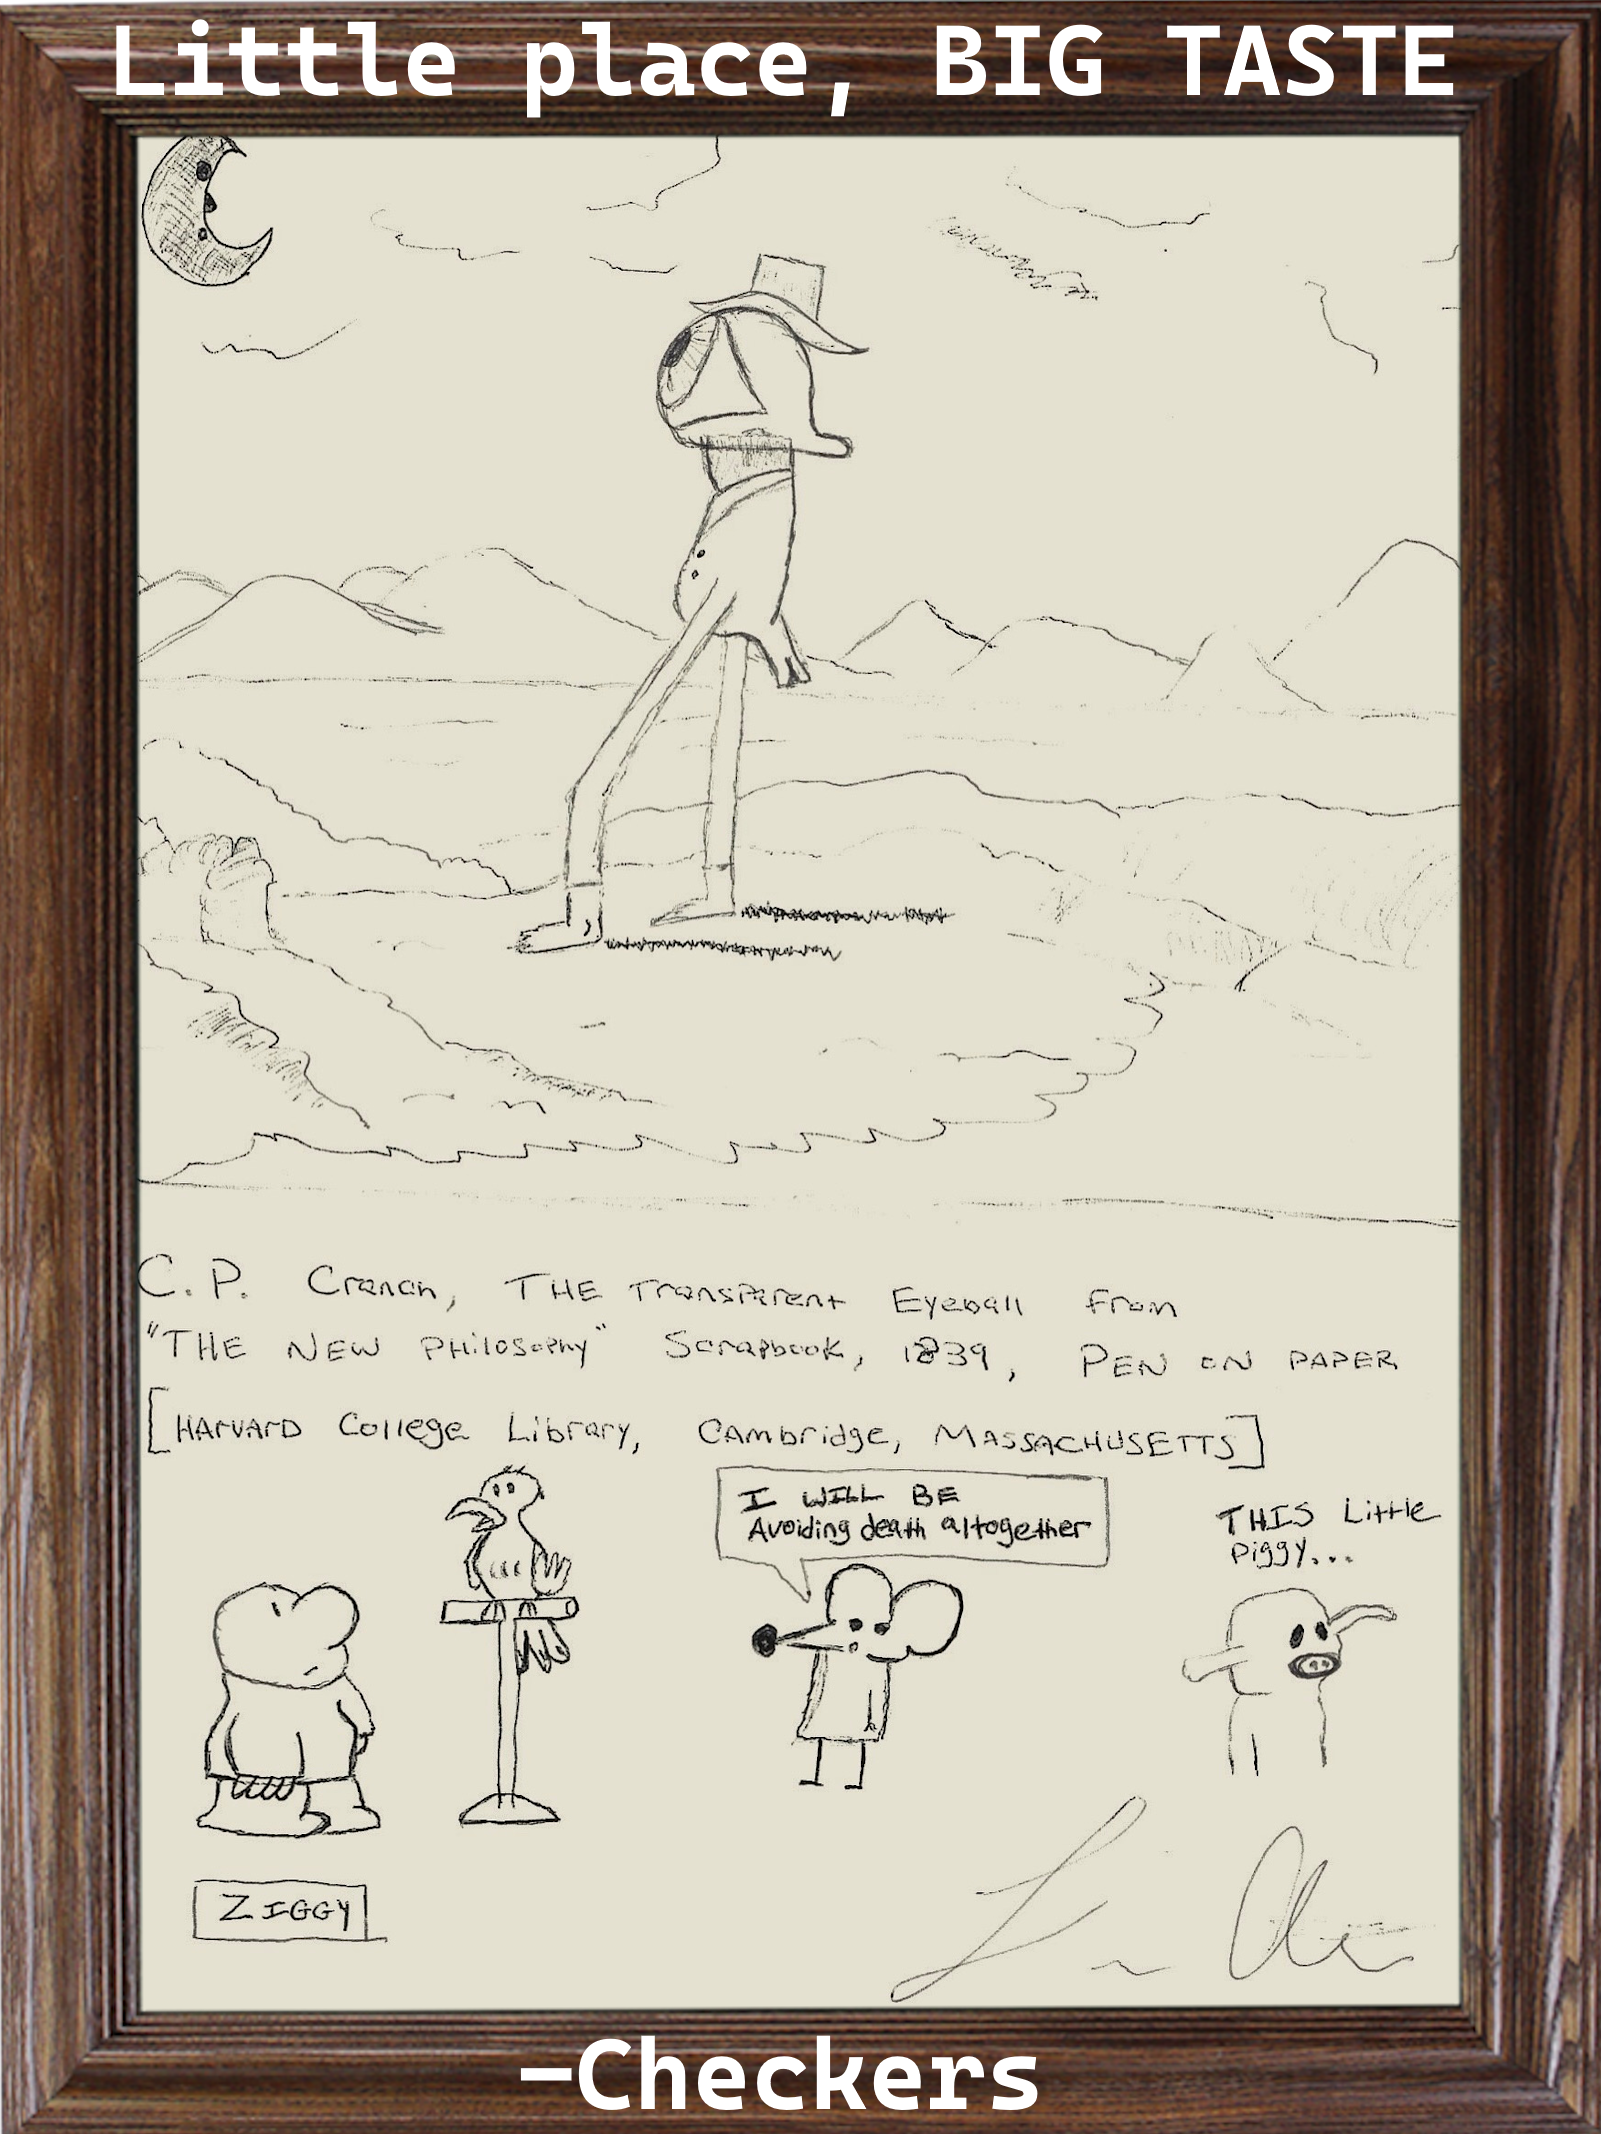 Little place, BIG TASTE
C.P. Cranch, THE Transparent Eyeball from
"THE NEW PHilosophy" Scrapbook, 1839, PEN ON PAPER
[HArVArD College Library, CAmbridge, MASSACHUSETTS]
I WILL BE
Avoiding death altogether
THIS Little
Piggy...
ZIGGY
–Checkers